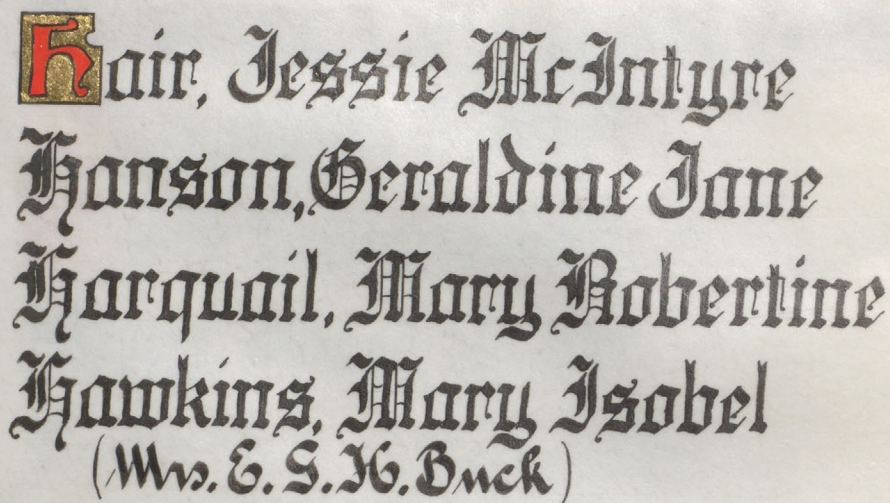 Hair, Jessie McIntyre
Hanson, Geraldine Jane
Harquail, Mary Robertine
Hawkins, Mary Isobel
(Mrs. E. S. H. Buck)